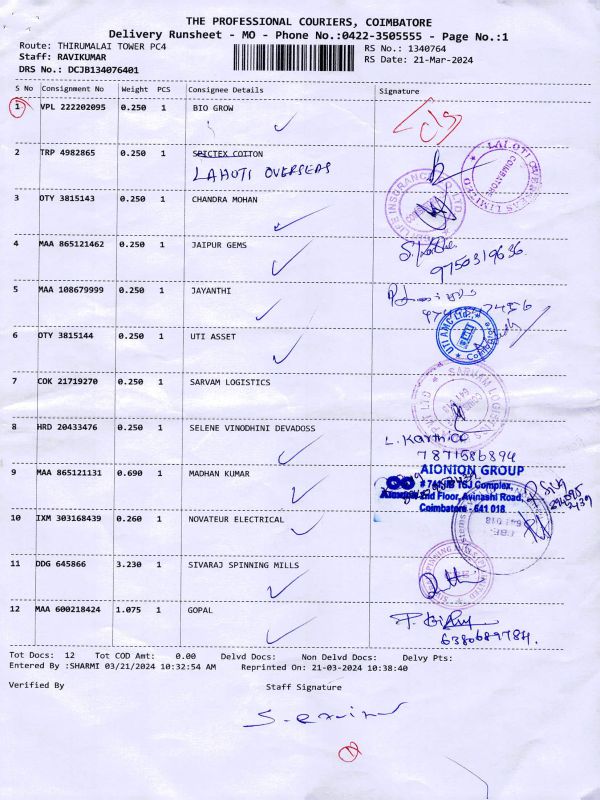 THE PROFESSIONAL COURIERS, COIMBATORE
Delivery Runsheet - MO - Phone No.:0422-3505555 - Page No.:1
Route: THIRUMALAI TOWER PC4 RS No.: 1340764
Staff: RAVIKUMAR RS Date: 21-Mar-2024
DRS No.: DCJB134076401
S No Consignment No Weight PCS Consignee Details Signature
1 VPL 222202095 0.250 1 BIO GROW
2 TRP 4982865 0.250 1 SPICTEX COTTON
LAHOTI OVERSEAS
LAHOTI OVERSEAS LIMITED
COIMBATORE
3 OTY 3815143 0.250 1 CHANDRA MOHAN
LIFE INSURANCE CO LTD
4 MAA 865121462 0.250 1 JAIPUR GEMS
9750319636
5 MAA 108679999 0.250 1 JAYANTHI
6 OTY 3815144 0.250 1 UTI ASSET
UTI AMC Ltd
7 COK 21719270 0.250 1 SARVAM LOGISTICS
SARVAM LOGISTICS
8 HRD 20433476 0.250 1 SELENE VINODHINI DEVADOSS
L. Karthica
7871586894
9 MAA 865121131 0.690 1 MADHAN KUMAR
AIONION GROUP
TSJ Complex,
2nd Floor, Avinashi Road,
Coimbatore - 641 018
10 IXM 303168439 0.260 1 NOVATEUR ELECTRICAL
11 DDG 645866 3.230 1 SIVARAJ SPINNING MILLS
12 MAA 600218424 1.075 1 GOPAL
6380689784.
Tot Docs: 12 Tot COD Amt: 0.00 Delvd Docs: Non Delvd Docs: Delvy Pts:
Entered By :SHARMI 03/21/2024 10:32:54 AM Reprinted On: 21-03-2024 10:38:40
Verified By Staff Signature